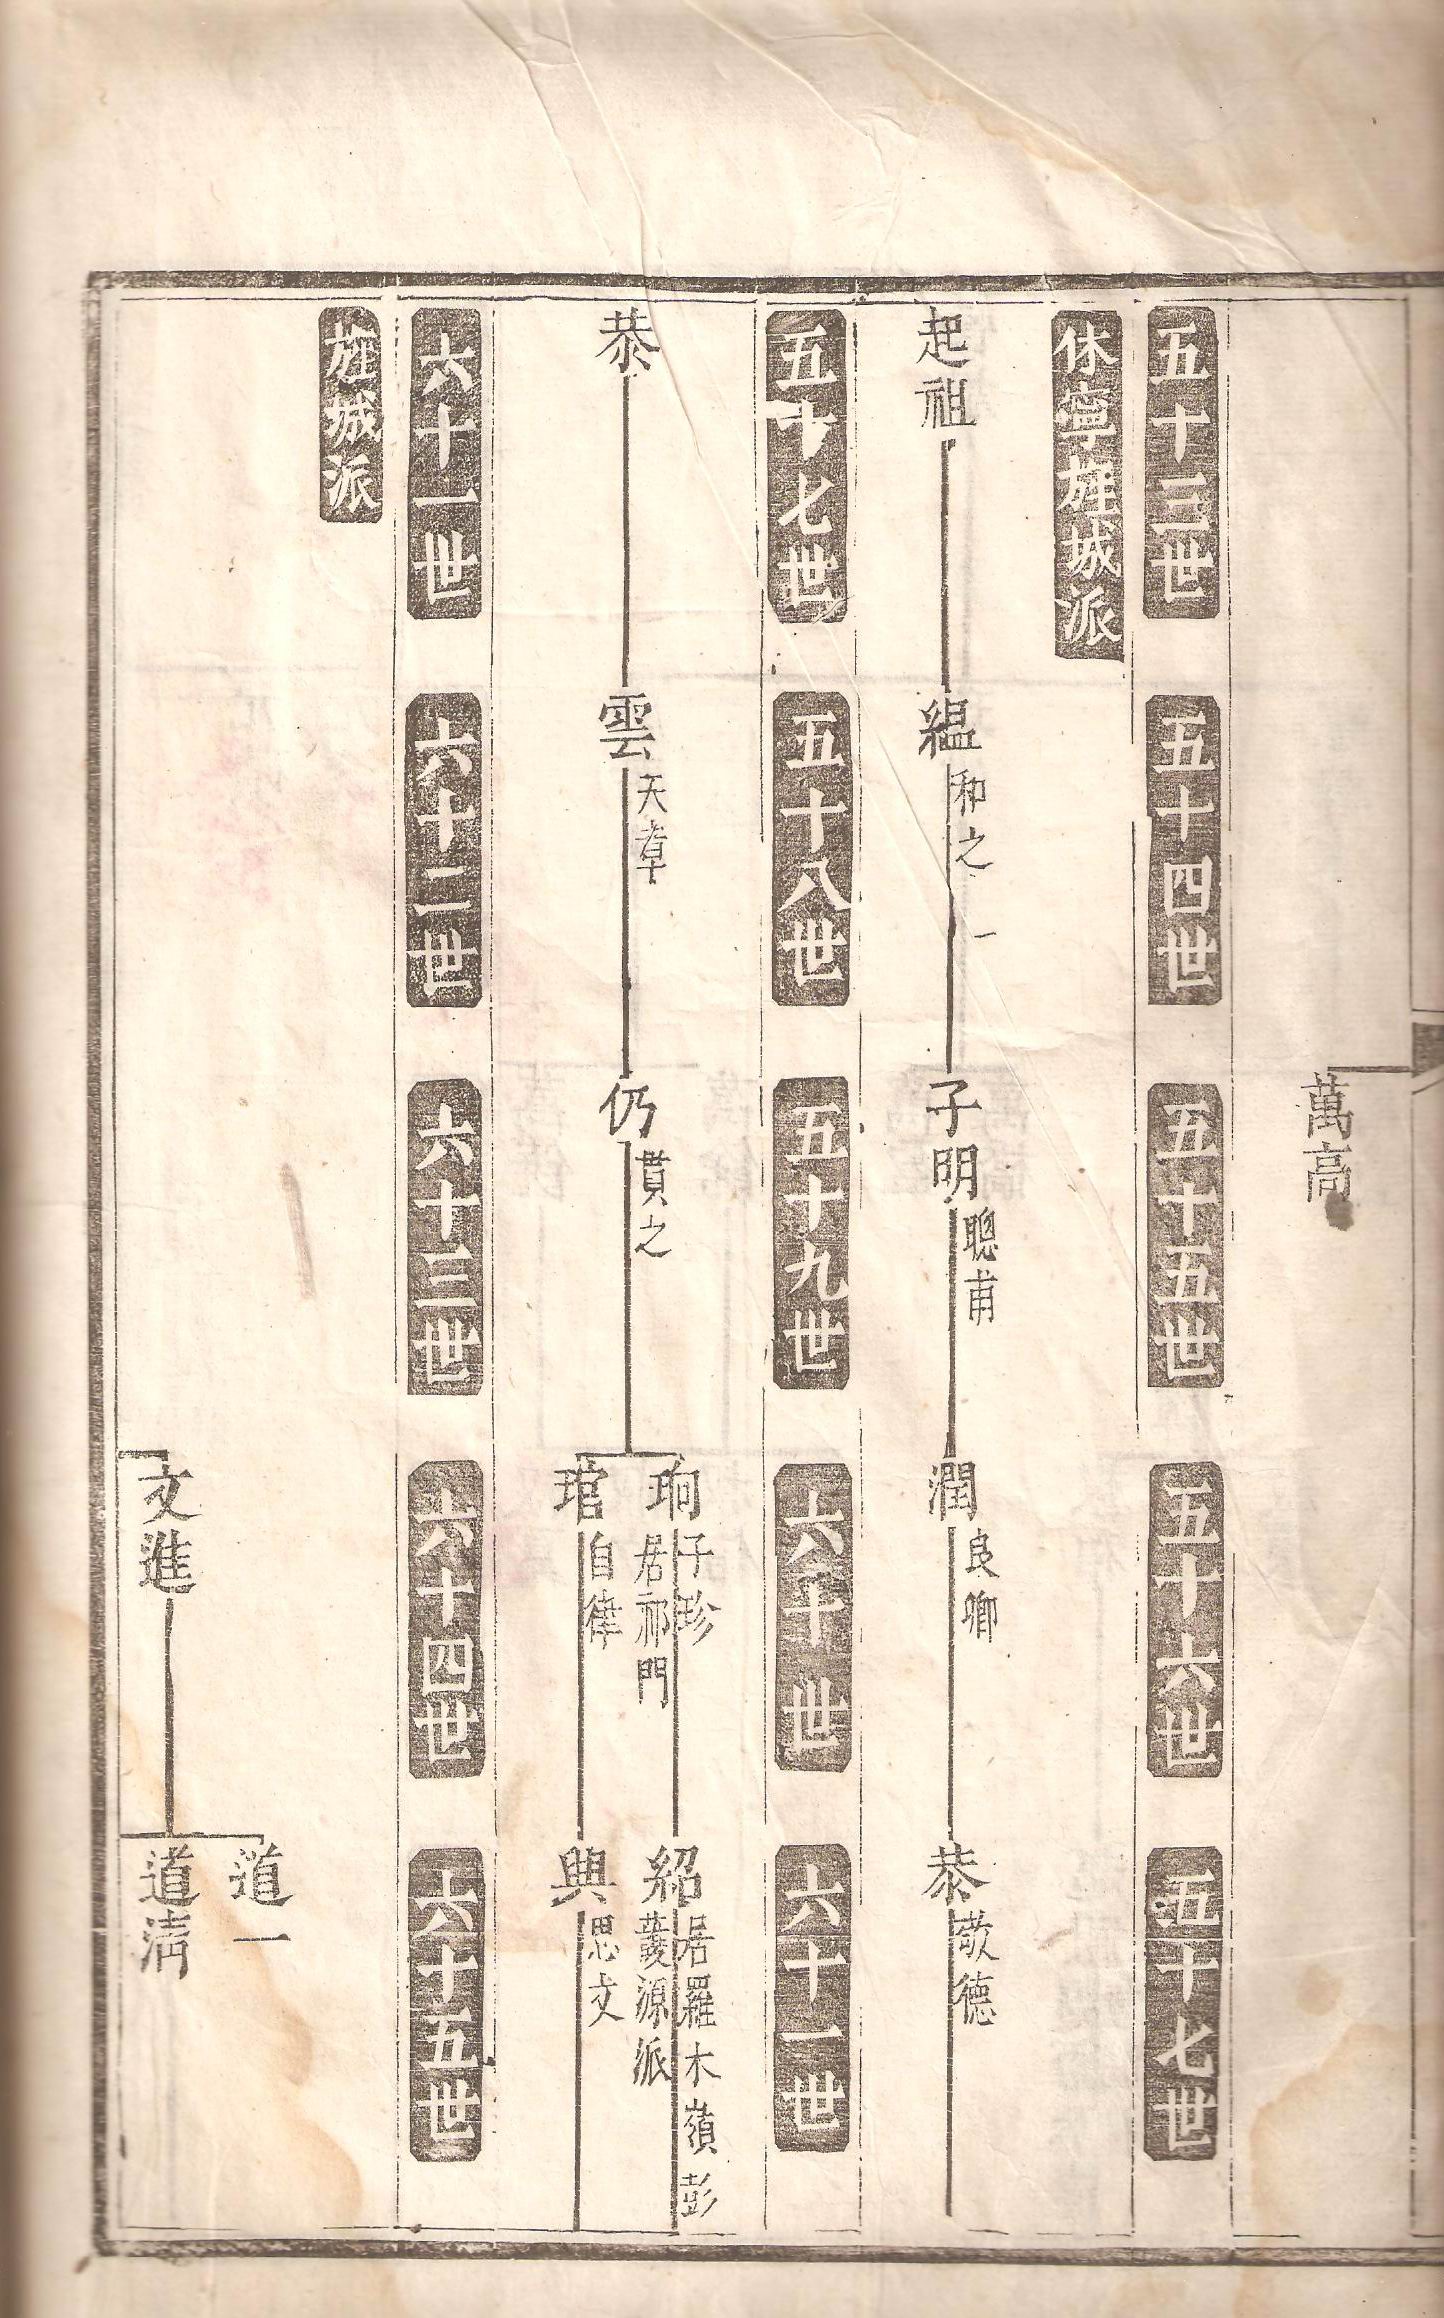 萬高
五十三世
五十四世
五十五世
五十六世
五十七世
休寧旌城派
起祖
縕
和之
子明
聰甫
潤
良卿
恭
敬德
五十七世
五十八世
五十九世
六十世
六十一世
恭
雲
天章
仍
貫之
珦
子珍
居祁門
紹
居羅木嶺彭
蔆源派
琯
自律
興
思文
六十一世
六十二世
六十三世
六十四世
六十五世
旌城派
道一
文進
道淸